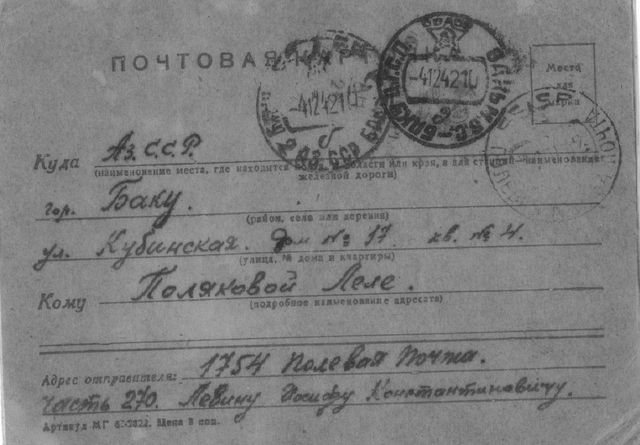 ПОЧТОВАЯ
Место для марки
-4 12 42 10
-4 12 42 10
Куда Аз. С. С. Р.
(наименование места, где находится области или края, а для станций наименование железной дороги)
гор. Баку.
(район, село или деревня)
ул. Кубинская. дом № 17. кв. № 4.
(улица, № дома и квартиры)
Кому Поляковой Леле.
(подробное наименование адресата)
Адрес отправителя: 1754 Полевая Почта.
Часть 270. Левину Иосифу Константиновичу.
Артикул МГ Цена 5 коп.